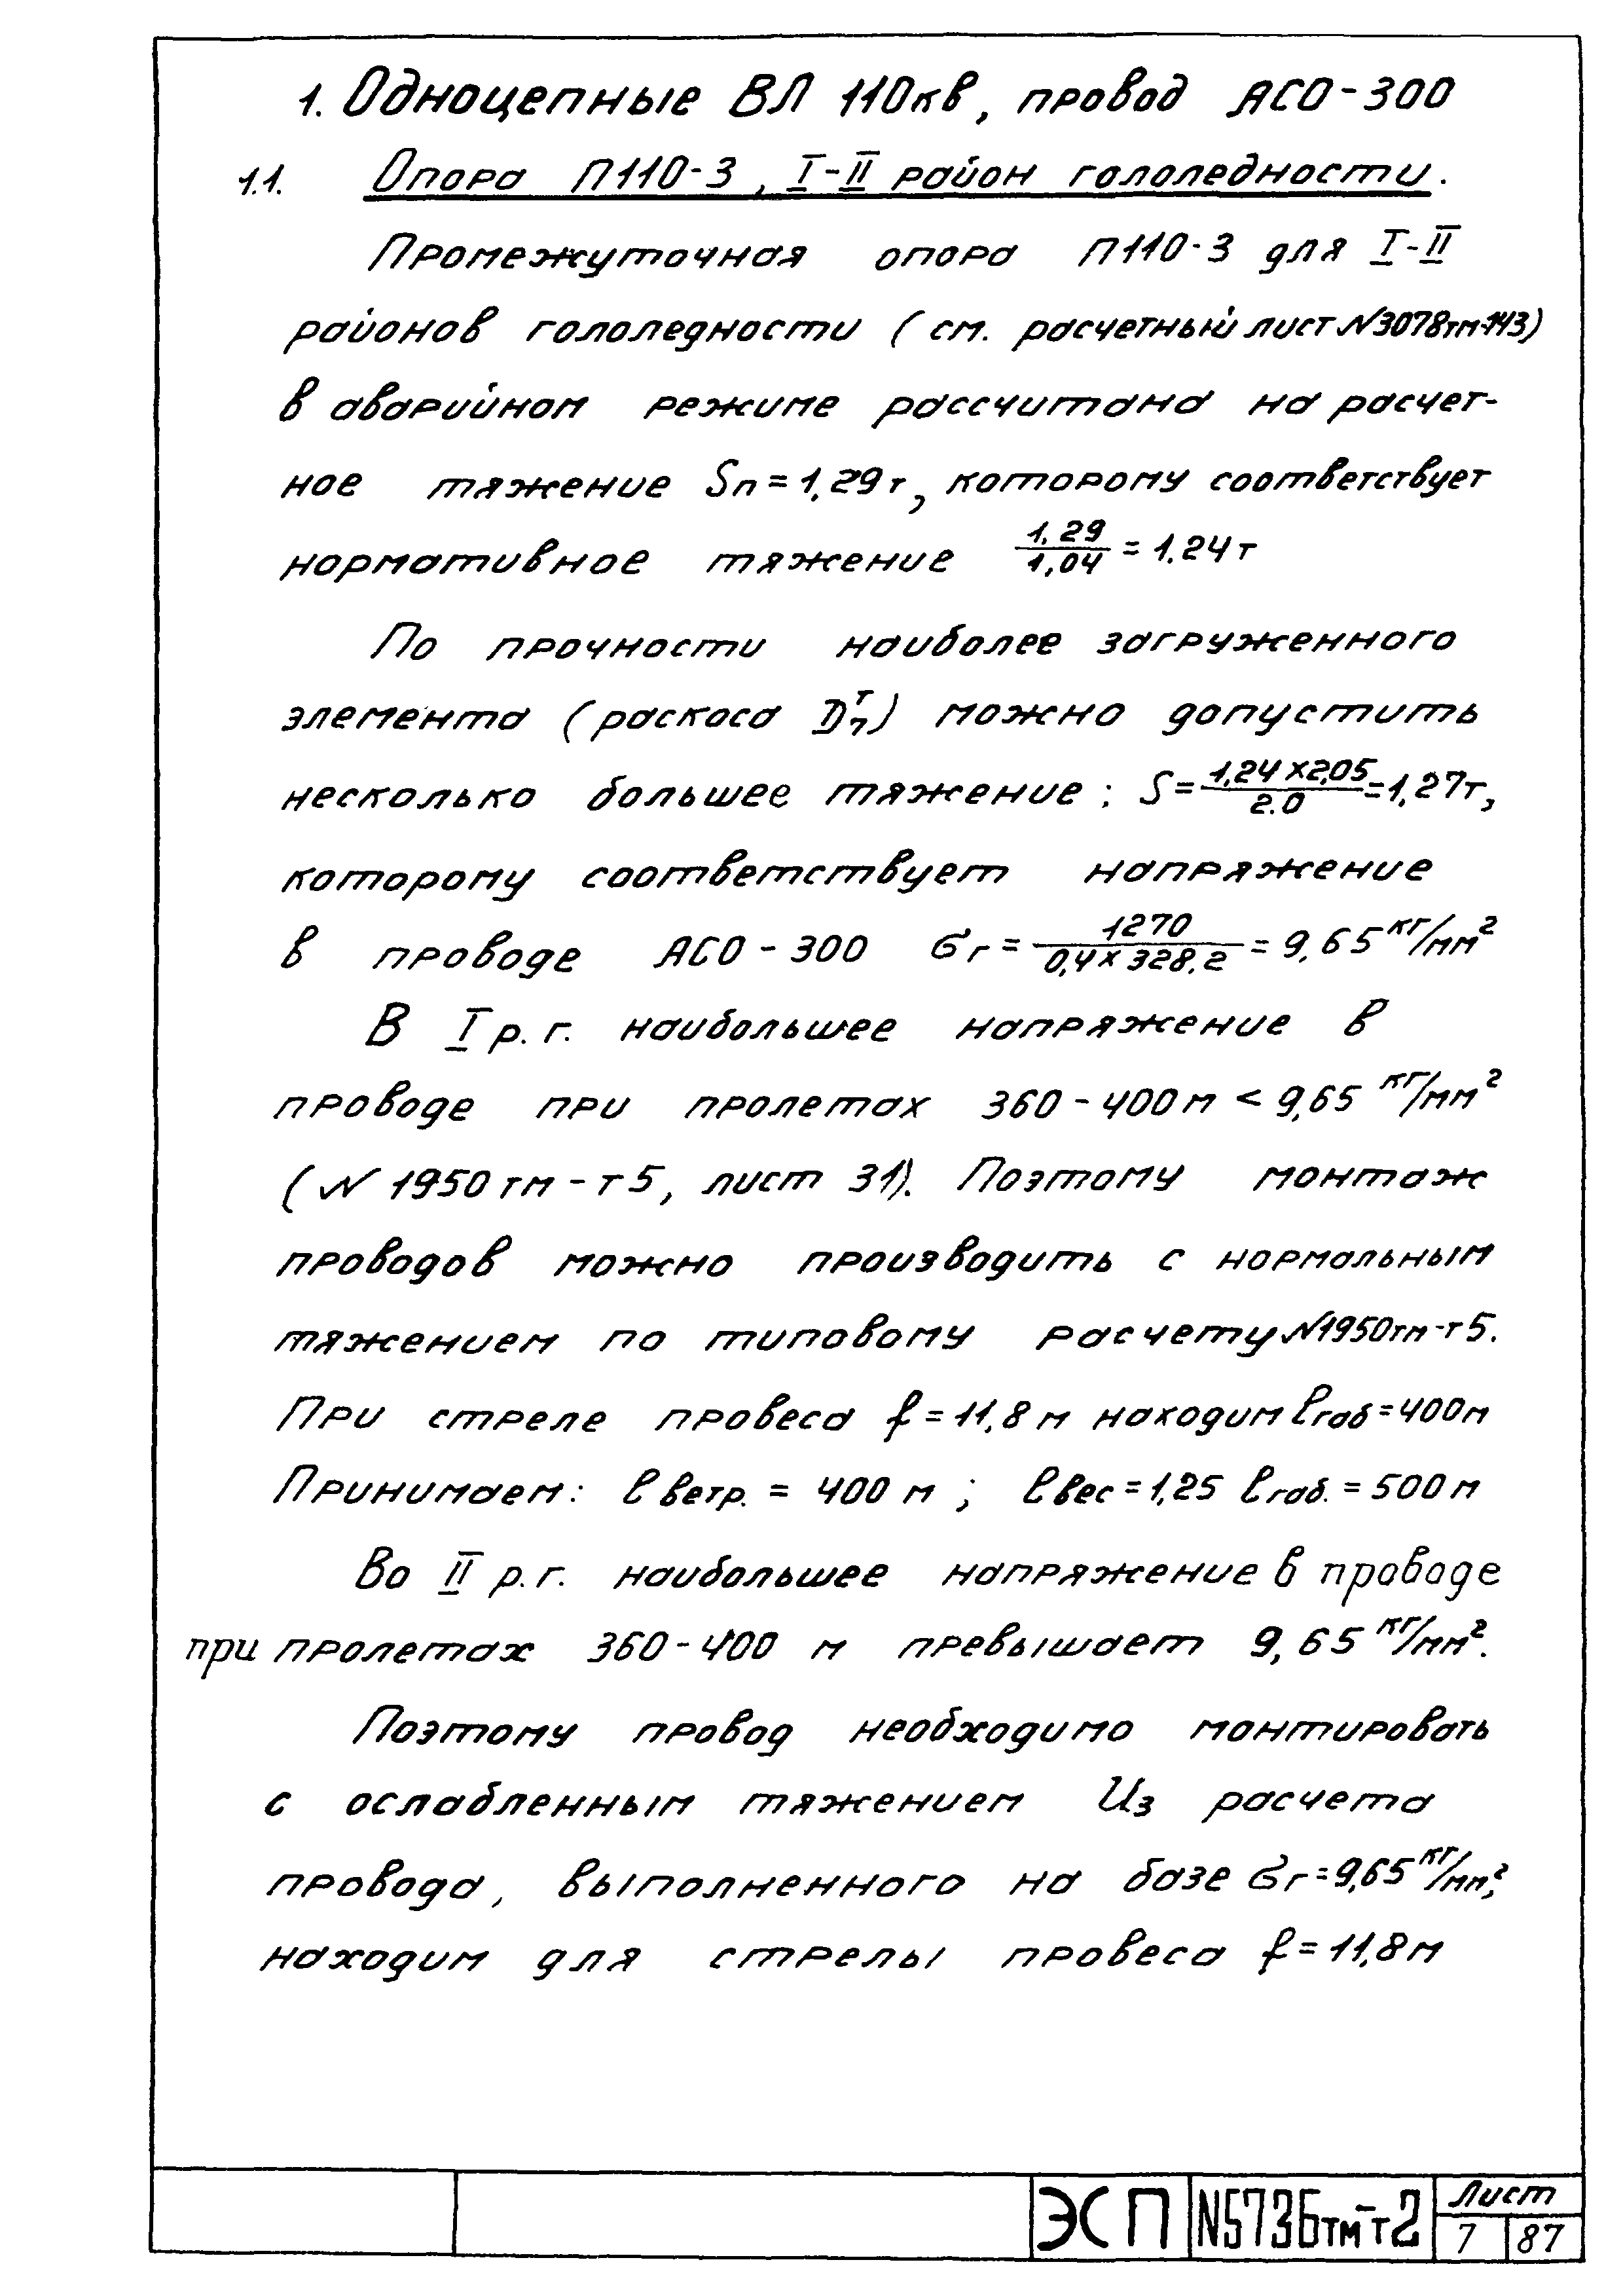 1. Одноцепные ВЛ 110кв, провод АСО-300
1.1. Опора П110-3, I-II район гололедности.
Промежуточная опора П110-3 для I-II
районов гололедности (см. расчетный лист №3078тм-143)
в аварийном режиме рассчитана на расчет-
ное тяжение Sп = 1,29т, которому соответствует
нормативное тяжение 1,29/1,04 = 1.24т
По прочности наиболее загруженного
элемента (раскоса D7т) можно допустить
несколько большее тяжение: S = 1,24 x 2,05/2.0 = 1,27т,
которому соответствует напряжение
в проводе АСО-300 σг = 1270/0,4 x 328,2 = 9,65 кг/мм²
В I р.г. наибольшее напряжение в
проводе при пролетах 360-400м < 9,65 кг/мм²
(№ 1950тм-т5, лист 31). Поэтому монтаж
проводов можно производить с нормальным
тяжением по типовому расчету №1950тм-т5.
При стреле провеса f = 11,8м находим lгаб = 400м
Принимаем: lветр. = 400 м; lвес = 1,25 lгаб. = 500м
Во II р.г. наибольшее напряжение в проводе
при пролетах 360-400 м превышает 9,65 кг/мм².
Поэтому провод необходимо монтировать
с ослабленным тяжением Из расчета
провода, выполненного на базе σг = 9,65 кг/мм²,
находим для стрелы провеса f = 11,8м
ЭСП N5736тм-т2 Лист
7 87